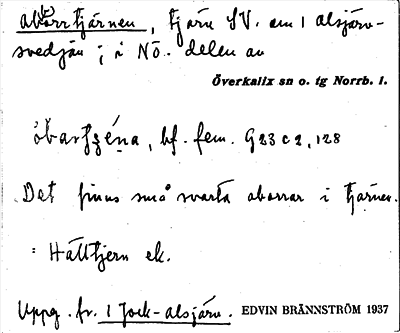 Abborrtjärnen, tjärn SV. om 1 alsjärv-
svedjan ; i NÖ. delen av
Överkalix sn o. tg Norrb. l.
bf. fem. G23 c 2, 128
Det finns små svarta aborrar i tjärnen.
= Håttjern ek.
Uppg. fr. 1 Jock-alsjärv. EDVIN BRÄNNSTRÖM 1937